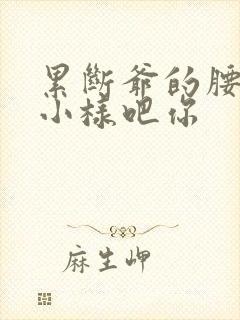 累断爷的腰
小樣吧你
麻生岬